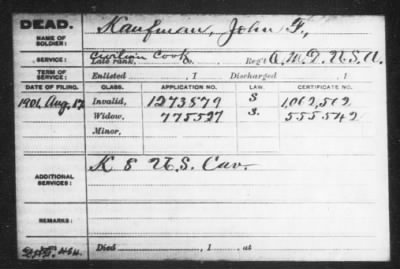 DEAD.
NAME OF SOLDIER: Kaufman, John F.,
SERVICE: Civilian Cook Late rank, Reg't Q.M.D. U.S.A.
TERM OF SERVICE: Enlisted , 1 Discharged , 1
DATE OF FILING. CLASS. APPLICATION NO. LAW. CERTIFICATE NO.
1901, Aug. 17 Invalid, 1273879 S 1,062,512
Widow, 775527 S. 555542
Minor,
ADDITIONAL SERVICES: K 8 U.S. Cav.
REMARKS:
Died , 1 , at